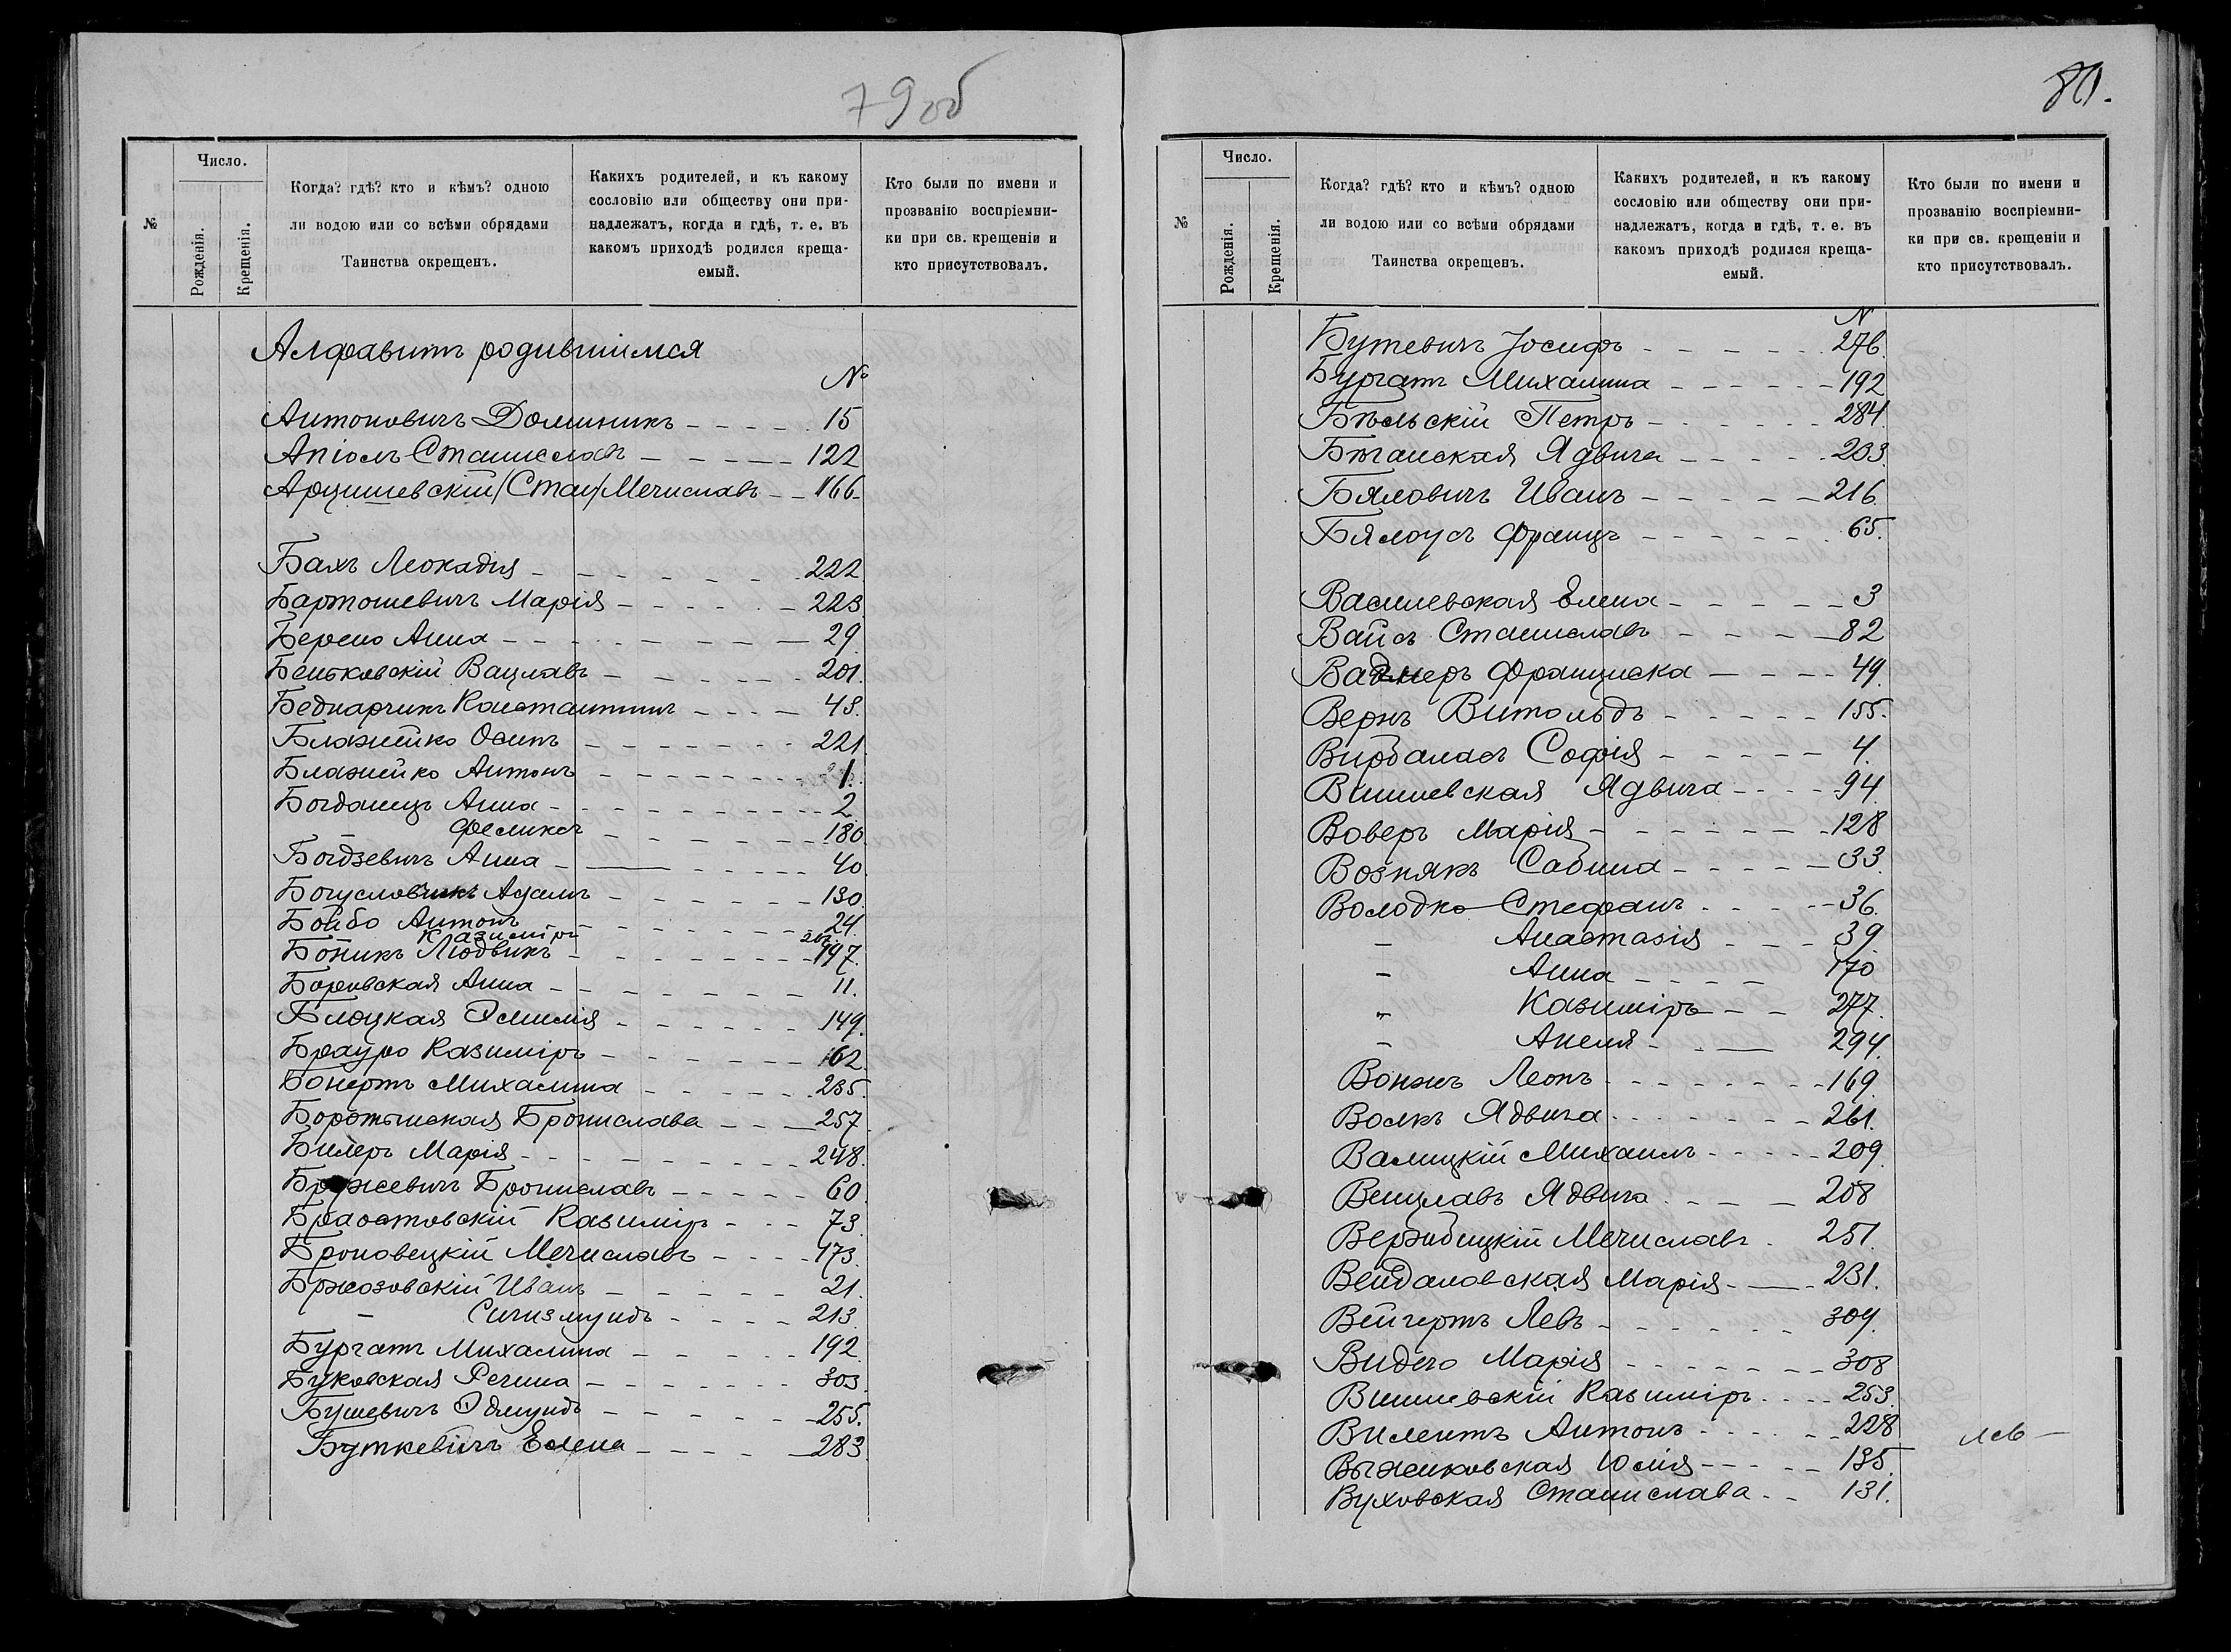 79об
№
Число.
Рожденія.
Крещенія.
Когда? гдѣ? кто и кѣмъ? одною
ли водою или со всѣми обрядами
Таинства окрещенъ.
Какихъ родителей, и къ какому
сословію или обществу они при-
надлежатъ, когда и гдѣ, т. е. въ
какомъ приходѣ родился креща-
емый.
Кто были по имени и
прозванію воспріемни-
ки при св. крещеніи и
кто присутствовалъ.
Алфавитъ родившимся
№
Антоновичъ Доминикъ - - - - - 15
Апіолъ Станиславъ - - - - - 122
Арцишевскій /Стан/ Мечиславъ - - 166
Бахъ Леокадія - - - - - - - 222
Бартошевичъ Марія - - - - - - 223
Берено Анна - - - - - - - - 29
Беньковскій Вацлавъ - - - - - 201.
Беднарчикъ Константинъ - - - - 43.
Блажейко Осипъ - - - - - - - 221
Блажейко Антонъ - - - - - - - 1.
Богданецъ Анна - - - - - - - - 2
- Феликсъ - - - - - - 180
Богдзевичъ Анна - - - - - - - 40
Богусловчикъ Адамъ - - - - - - 130
Бойбо Антонъ - - - - - - - 24.
Казиміръ
Боникъ Людвикъ - - - - - - - 197.
Боровская Анна - - - - - - - - 11.
Блоцкая Эмилія - - - - - - 149.
Брауро Казиміръ - - - - - - 162
Бонертъ Михалина - - - - - 235.
Боротынская Бронислава - - - 257
Билеръ Марія - - - - - - - - - 248.
Бржевичъ Брониславъ - - - - - 60
Браостовскій Казиміръ - - - 73
Броновецкій Мечиславъ - - - - 173.
Бржозовскій Иванъ - - - - - 21.
- Сигизмундъ - - - - 213
Бургатъ Михалина - - - - - 192
Буковская Регина - - - - - - - 303.
Бушевичъ Эдмундъ - - - - - - 255.
Буткевичъ Елена - - - - - 283
80.
№
Число.
Рожденія.
Крещенія.
Когда? гдѣ? кто и кѣмъ? одною
ли водою или со всѣми обрядами
Таинства окрещенъ.
Какихъ родителей, и къ какому
сословію или обществу они при-
надлежатъ, когда и гдѣ, т. е. въ
какомъ приходѣ родился креща-
емый.
Кто были по имени и
прозванію воспріемни-
ки при св. крещеніи и
кто присутствовалъ.
N
Бутевичъ Іосифъ - - - - - - 276.
Бургатъ Михалина - - - - - - 192
Бѣльскій Петръ - - - - - - 284
Бѣганская Ядвига - - - - - 203.
Бяловичъ Иванъ - - - - - 216
Бялоусъ Францъ - - - - - - 65.
Василевская Елена - - - - - 3
Вайсъ Станиславъ - - - - 82
Вагнеръ Франциска - - - - 49.
Вернъ Витольдъ - - - - - 155.
Вирбаласъ Софія - - - - - 4.
Вишневская Ядвига - - - - 94.
Воверъ Марія - - - - - - - 128
Вознякъ Сабина - - - - - 33.
Володко Стефанъ - - - - - 36.
- Анастазія - - - 39
- Анна - - - - 170
„ Казиміръ - - 277.
- Анеля - - - 294.
Вонжъ Леонъ - - - - - - - 169.
Волкъ Ядвига - - - - - - - 261.
Валицкій Михаилъ - - - - - 209.
Венцлавъ Ядвига - - - - 208
Вержбицкій Мечиславъ - 251.
Вендаловская Марія - - - 231.
Вейгертъ Левъ - - - - - - 309.
Видего Марія - - - - - - - 308
Вишневскій Казиміръ - - - - 253.
Вилентъ Антонъ - - - - - - 228
Выжиковская Юлія - - - - - 135.
Вуховская Станислава - - 131.